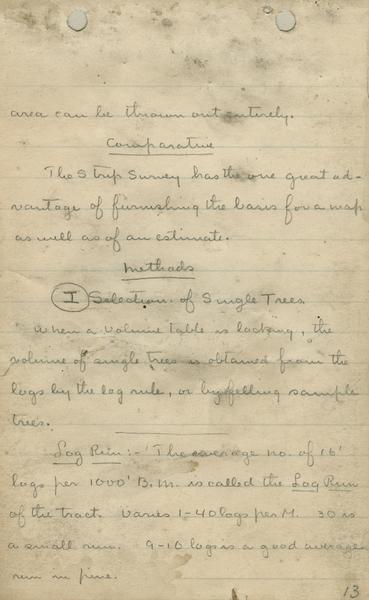 area can be thrown out entirely.
Comparative
The Strip Survey has the one great ad-
vantage of furnishing the basis for a map
as well as of an estimate.
Methods
I Selection of Single Trees
When a volume table is lacking, the
volume of single trees is obtained from the
logs by the log rule, or by felling sample
trees.
Log Run:- The average no. of 16'
logs per 1000' B.M. is called the Log Run
of the tract. Varies 1-40 logs per M. 30 is
a small run. 9-10 logs is a good average
run in pine.
13